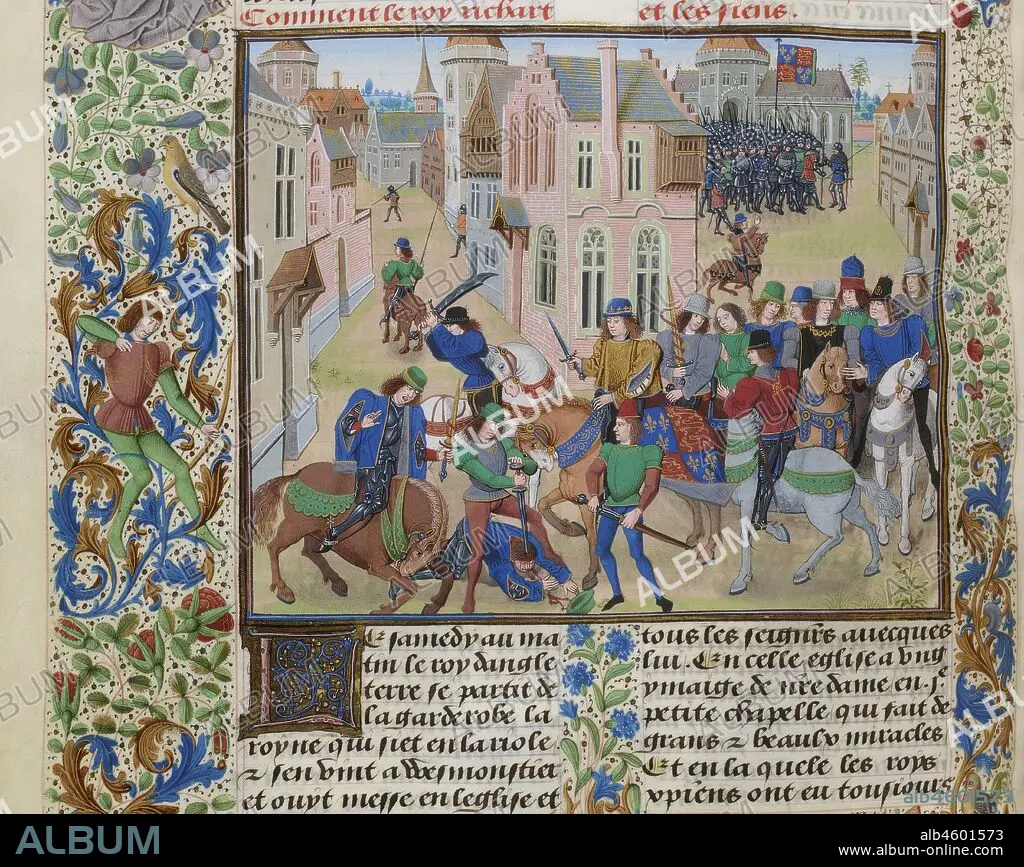 Comment le roy richart
et les siens.
Le samedy au ma
tin le roy dangle
terre se partit de
la garderobe la
royne qui siet en lariole
& sen vint a Wesmonstier
et ouyt messe en leglise et
tous les seignrs avecques
lui. En celle eglise a ung
ymaige de nre dame en
petite chapelle qui fait de
grans & beaulx miracles
Et en la quele les roys
xpiens ont eu tousiours
ALBUM
alb4601573
ALBUM
alb4601573
www.album-online.com